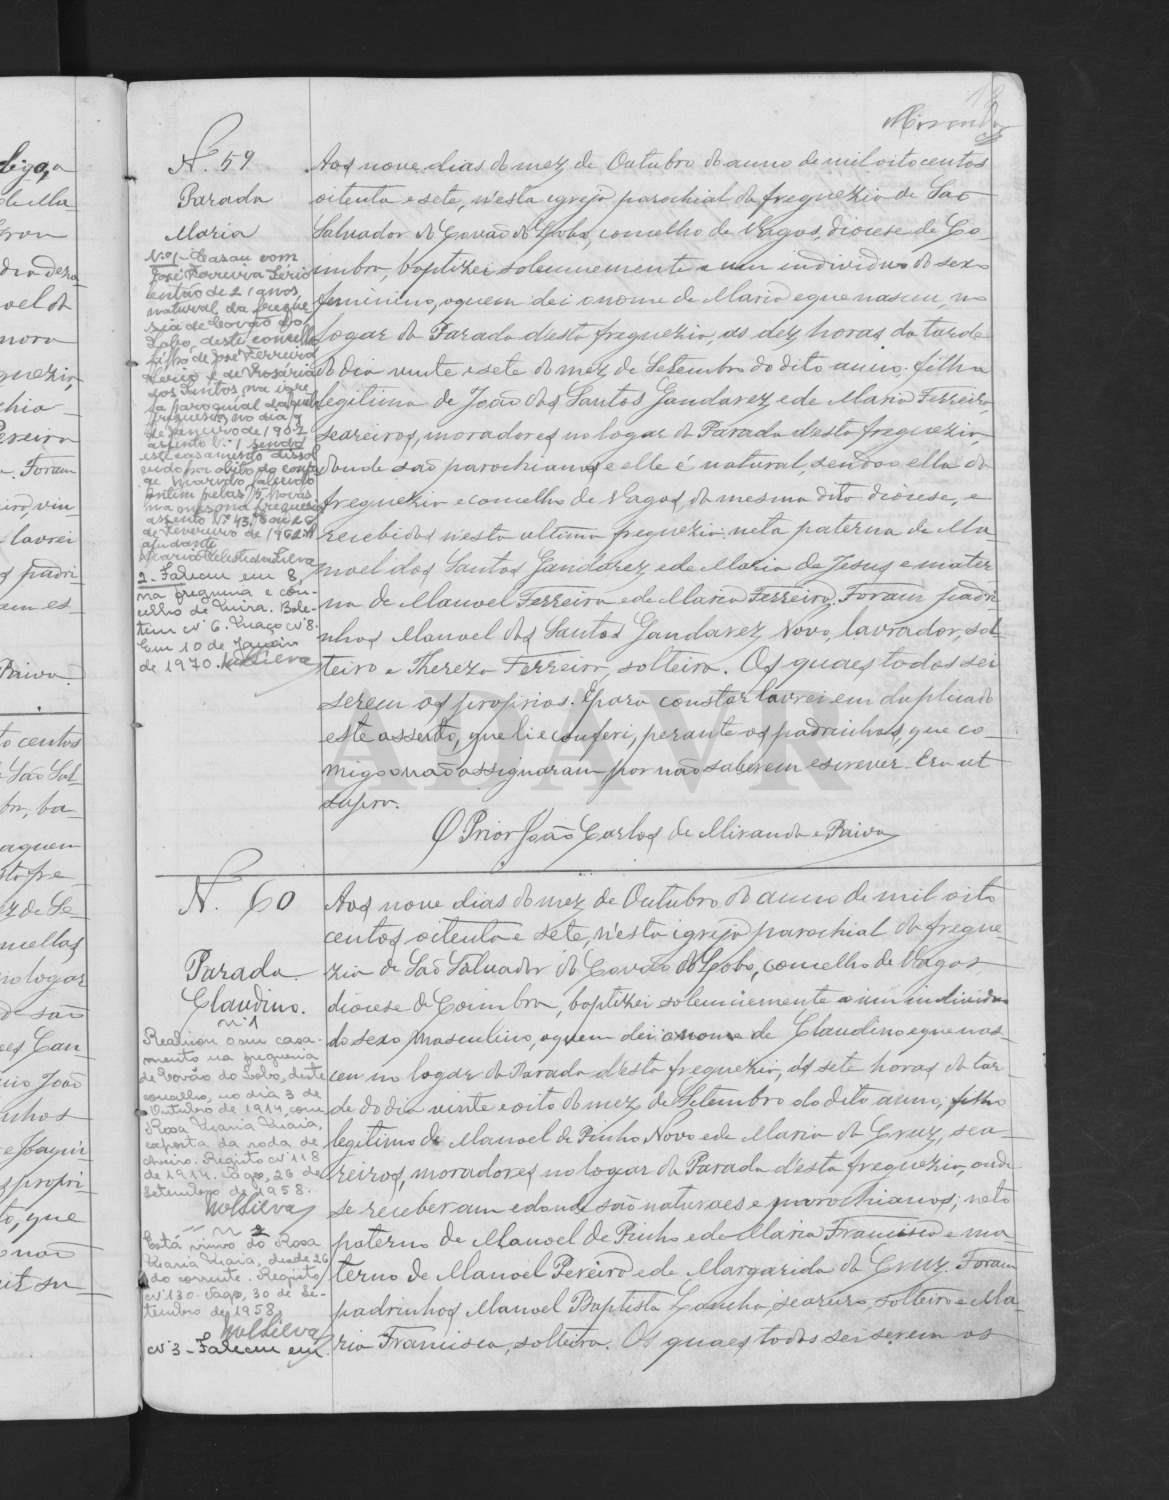 Miranda
N.º 59
Parada
Maria
Nº 1 - Casou com
José Ferreira Serio
então de 21 anos,
natural da fregue
sia de Covão do
Lobo, deste concelho
filho de José Ferreira
Serio e de Rosaria
dos Santos, na igre
ja paroquial daquela
freguesia no dia 9
de Janeiro de 1902
assento N.º 1 sendo
este casamento dissol
vido por obito do conju
ge marido, falecido
ontem pelas 15 horas
na mesma freguesia
assento Nº 43. Em 26
de Fevereiro de 1962. A
ajudante
Maria Celeste da Silva
2 - Faleceu em 8,
na freguesia e con-
celho de Mira. Bole-
tim Nº 6. Maço Nº 8.
Em 10 de Janeiro
de 1970. MolSilva
Aos nove dias do mez de Outubro do anno de mil oitocentos
oitenta e sete, n'esta egreja parochial da freguezia de São
Salvador do Covão do Lobo, concelho de Vagos, diocese de Co-
imbra, baptizei solemnemente a um individuo do sexo
feminino, a quem dei o nome de Maria e que nasceu, no
logar da Parada d'esta freguezia, as dez horas da tarde
do dia vinte e sete do mez de Setembro do dito anno, filha
legitima de João dos Santos Gandarez, e de Maria Ferreira,
seareiros, moradores no logar da Parada d'esta freguezia,
d'onde são parochianos e elle é natural, sendo ella da
freguezia e concelho de Vagos, da mesma dita diocese, e
recebidos n'esta ultima freguezia: neta paterna de Ma-
noel dos Santos Gandarez, e de Maria de Jesus, e mater
na de Manoel Ferreira e de Maria Ferreira. Foram padri-
nhos Manoel dos Santos Gandarez Novo, lavrador, sol
teiro e Thereza Ferreira, solteira. Os quaes todos sei
serem os proprios. E para constar lavrei em duplicado
este assento, que li e conferi, perante os padrinhos, que co-
migo não assignaram por não saberem escrever. Era ut
supra.
O Prior João Carlos de Miranda e Paiva
N.º 60
Parada
Claudino.
Nº 1
Realizou o seu casa-
mento na freguesia
de Covão do Lobo, deste
concelho, no dia 3 de
Outubro de 1914, com
Rosa Maria Maia,
exposta da roda de
Registo Nº 118
de 1914. Vagos, 26 de
Setembro de 1958.
MolSilva
Nº 2
Está viuvo de Rosa
Maria Maia, desde 26
do corrente. Registo
Nº 130. Vagos, 30 de Se-
tembro de 1958.
MolSilva
Nº 3 - Faleceu em
Aos nove dias do mez de Outubro do anno de mil oito
centos oitenta e sete, n'esta igreja parochial da fregue-
zia de São Salvador do Covão do Lobo, concelho de Vagos
diocese de Coimbra, baptizei solemnemente a um individuo
do sexo masculino, a quem dei o nome de Claudino e que nas-
ceu no logar da Parada d'esta freguezia, ás sete horas da tar-
de do dia vinte e oito do mez de Setembro do dito anno, filho
legitimo de Manoel de Pinho Novo e de Maria da Cruz, sea-
reiros, moradores no logar da Parada d'esta freguezia, onde
se receberam e donde são naturaes e parochianos; neto
paterno de Manoel de Pinho e de Maria Francisca e ma-
terno de Manoel Pereira e de Margarida da Cruz. Foram
padrinhos Manoel Baptista Gancho, seareiro, solteiro e Ma
ria Francisca, solteira. Os quaes todos sei serem os
ADAVR